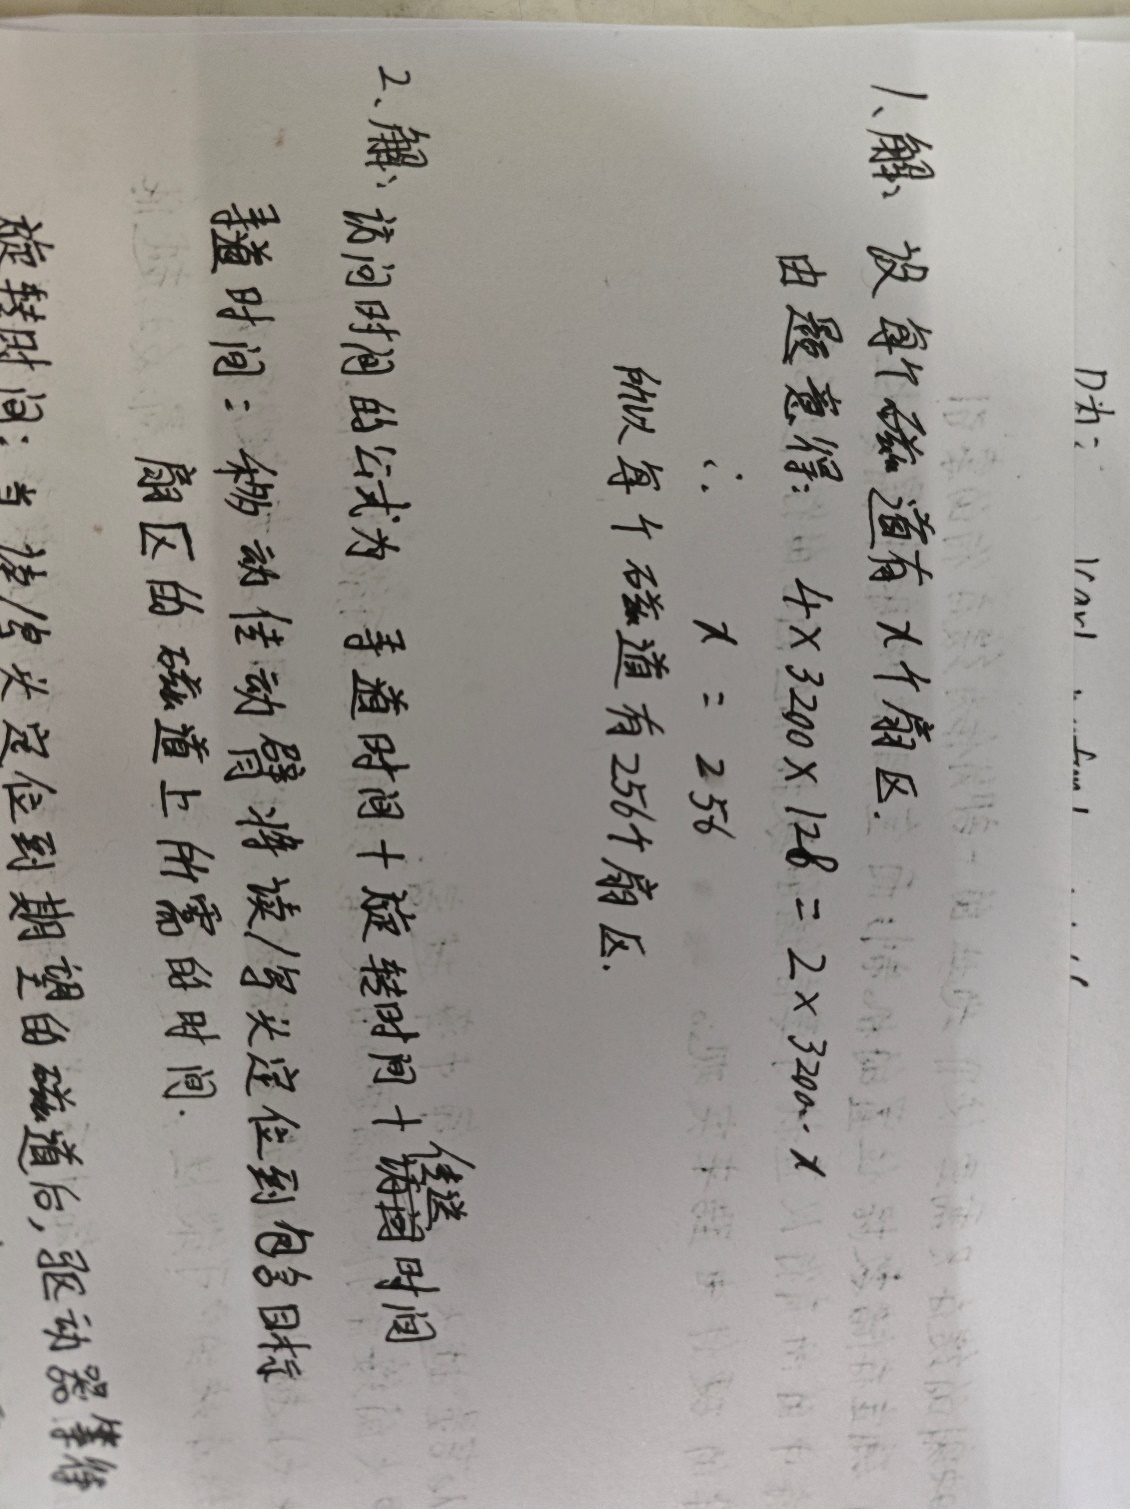 1、解: 设每个磁道有x个扇区.
由题意得: 4×3200×128=2×3200·x
∴ x=256
所以每个磁道有256个扇区.
2、解: 访问时间的公式为 寻道时间+旋转时间+传送时间
寻道时间: 移动传动臂将读/写头定位到包含目标
扇区的磁道上所需的时间.
旋转时间: 当读/写头定位到期望的磁道后, 驱动器等待